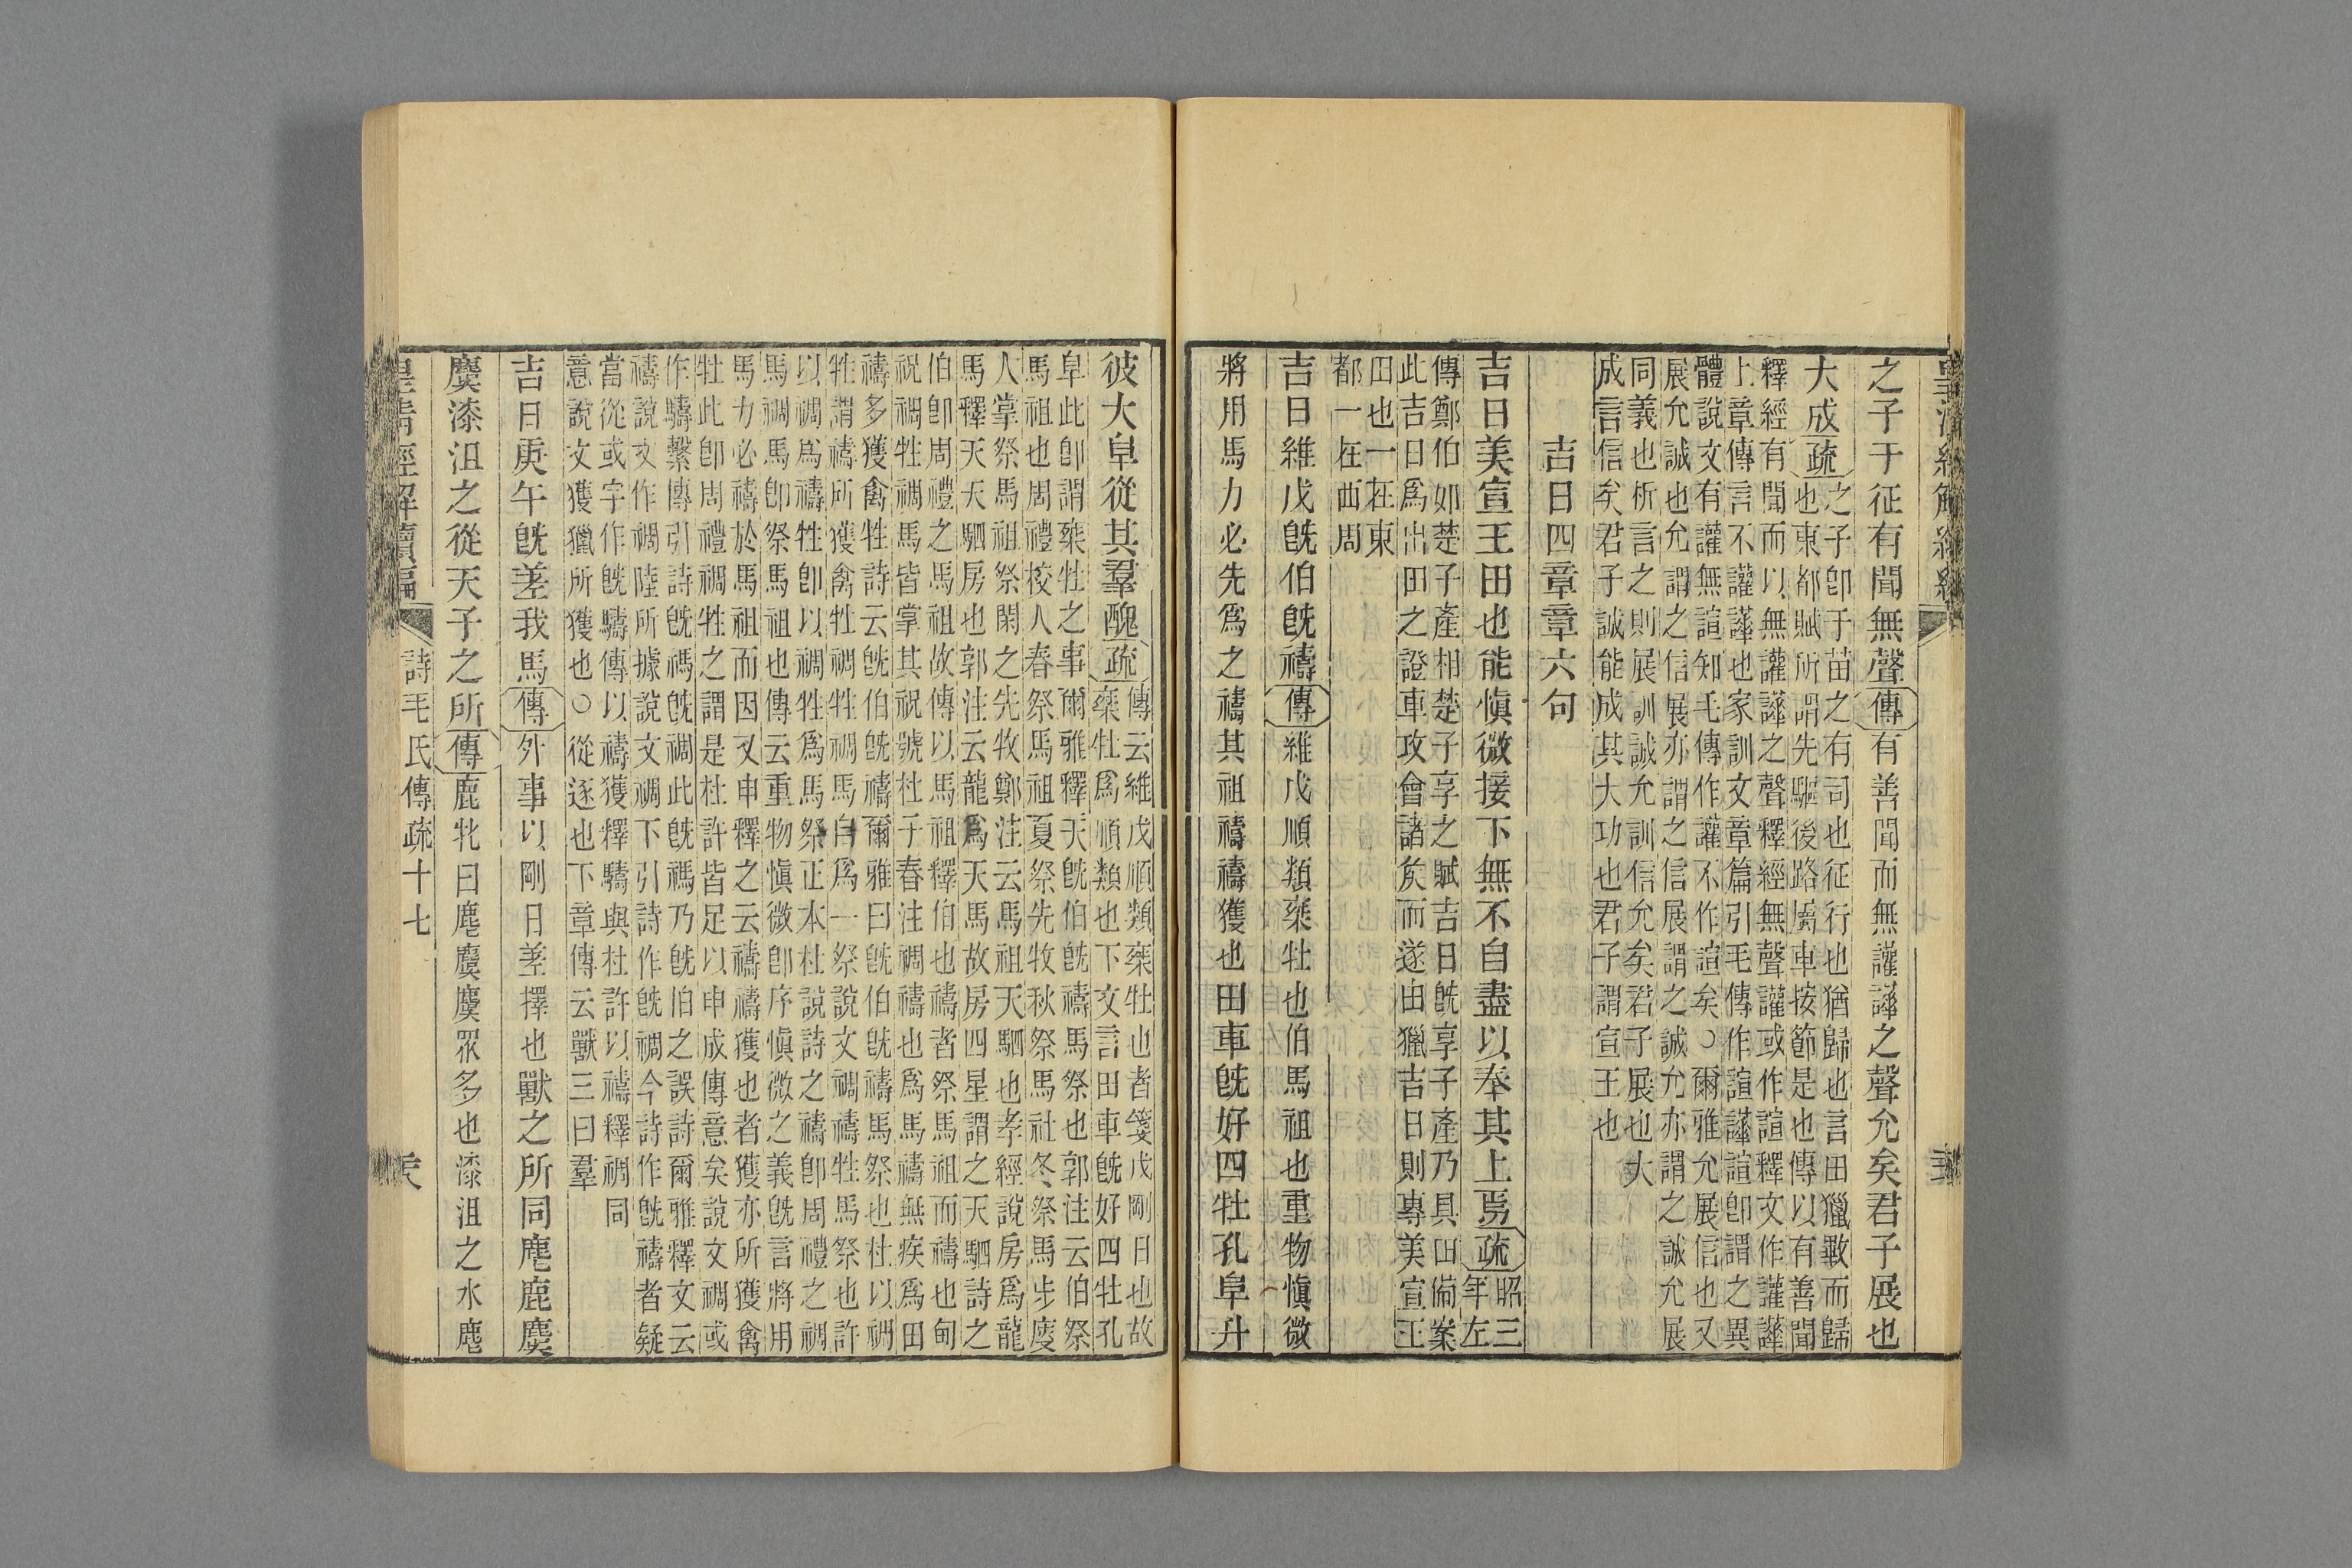 之子于征有聞無聲傳有善聞而無讙譁之聲允矣君子展也
大成疏之子卽于苗之有司也征行也猶歸也言田獵斁而歸
也東都賦所謂先驅後路屬車按節是也傳以有善聞
釋經有聞而以無讙譁之聲釋經無聲讙或作諠釋文作讙譁
上章傳言不讙譁也家訓文章篇引毛傳作諠譁諠卽謂之異
體說文有讙無諠知毛傳作讙不作諠矣○爾雅允展信也又
展允誠也允謂之信展亦謂之信展謂之誠允亦謂之誠允展
同義也析言之則展訓誠允訓信允矣君子展也大
成言信矣君子誠能成其大功也君子謂宣王也
吉日四章章六句
吉日美宣王田也能愼微接下無不自盡以奉其上焉疏昭三
年左
傳鄭伯如楚子產相楚子享之賦吉日旣享子產乃具田備案
此吉日爲出田之證車攻會諸矦而遂由獵吉日則專美宣王
田也一在東
都一在西周
吉日維戊旣伯旣禱傳維戊順類椉牡也伯馬祖也重物愼微
將用馬力必先爲之禱其祖禱禱獲也田車旣好四牡孔阜升
彼大阜從其羣醜疏傳云維戊順類椉牡也者箋戊剛日也故
椉牡爲順類也下文言田車旣好四牡孔
阜此卽謂椉牡之事爾雅釋天旣伯旣禱馬祭也郭注云伯祭
馬祖也周禮校人春祭馬祖夏祭先牧秋祭馬社冬祭馬步廋
人掌祭馬祖祭閑之先牧鄭注云馬祖天駟也孝經說房爲龍
馬釋天天駟房也郭注云龍爲天馬故房四星謂之天駟詩之
伯卽周禮之馬祖故傳以馬祖釋伯也禱者祭馬祖而禱也甸
祝禂牲禂馬皆掌其祝號杜子春注禂禱也爲馬禱無疾爲田
禱多獲禽牲詩云旣伯旣禱爾雅曰旣伯旣禱馬祭也杜以禂
牲謂禱所獲禽牲禂牲禂馬自爲一祭說文禂禱牲馬祭也許
以禂爲禱牲卽以禂牲爲馬祭正本杜說詩之禱卽周禮之禂
馬禂馬卽祭馬祖也傳云重物愼微卽序愼微之義旣言將用
馬力必禱於馬祖而因又申釋之云禱禱獲也者獲亦所獲禽
牡此卽周禮禂牲之謂是杜許皆足以申成傳意矣說文禂或
作䮻繫傳引詩旣禡旣禂此旣禡乃旣伯之誤詩爾雅釋文云
禱說文作禂陸所據說文禂下引詩作旣禂今詩作旣禱者疑
當從或字作旣䮻傳以禱獲釋䮻與杜許以禱釋禂同
意說文獲獵所獲也○從逐也下章傳云獸三曰羣
吉日庚午旣差我馬傳外事以剛日差擇也獸之所同麀鹿麌
麌漆沮之從天子之所傳鹿牝曰麀麌麌眾多也漆沮之水麀
皇清經解續編 詩毛氏傳疏十七